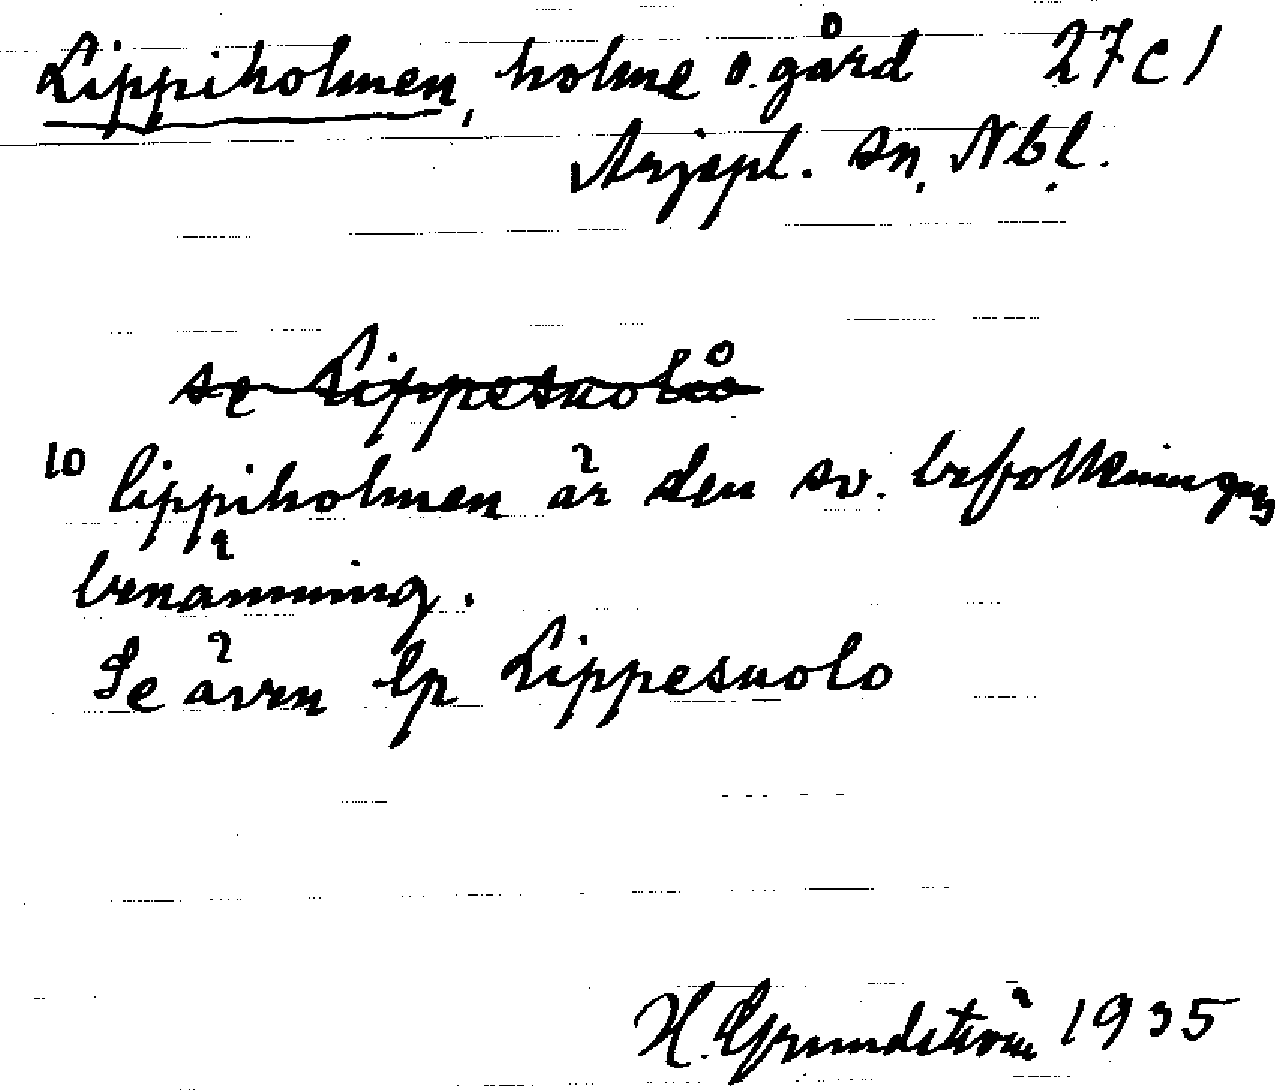 Lippiholmen, holme o. gård 27 c 1
Arjepl. sn, Nbl.
se Lippesuolo
10 lippiholmen är den sv. befolkningens
benämning.
Se även lp Lippesuolo
H. Grundström 1935